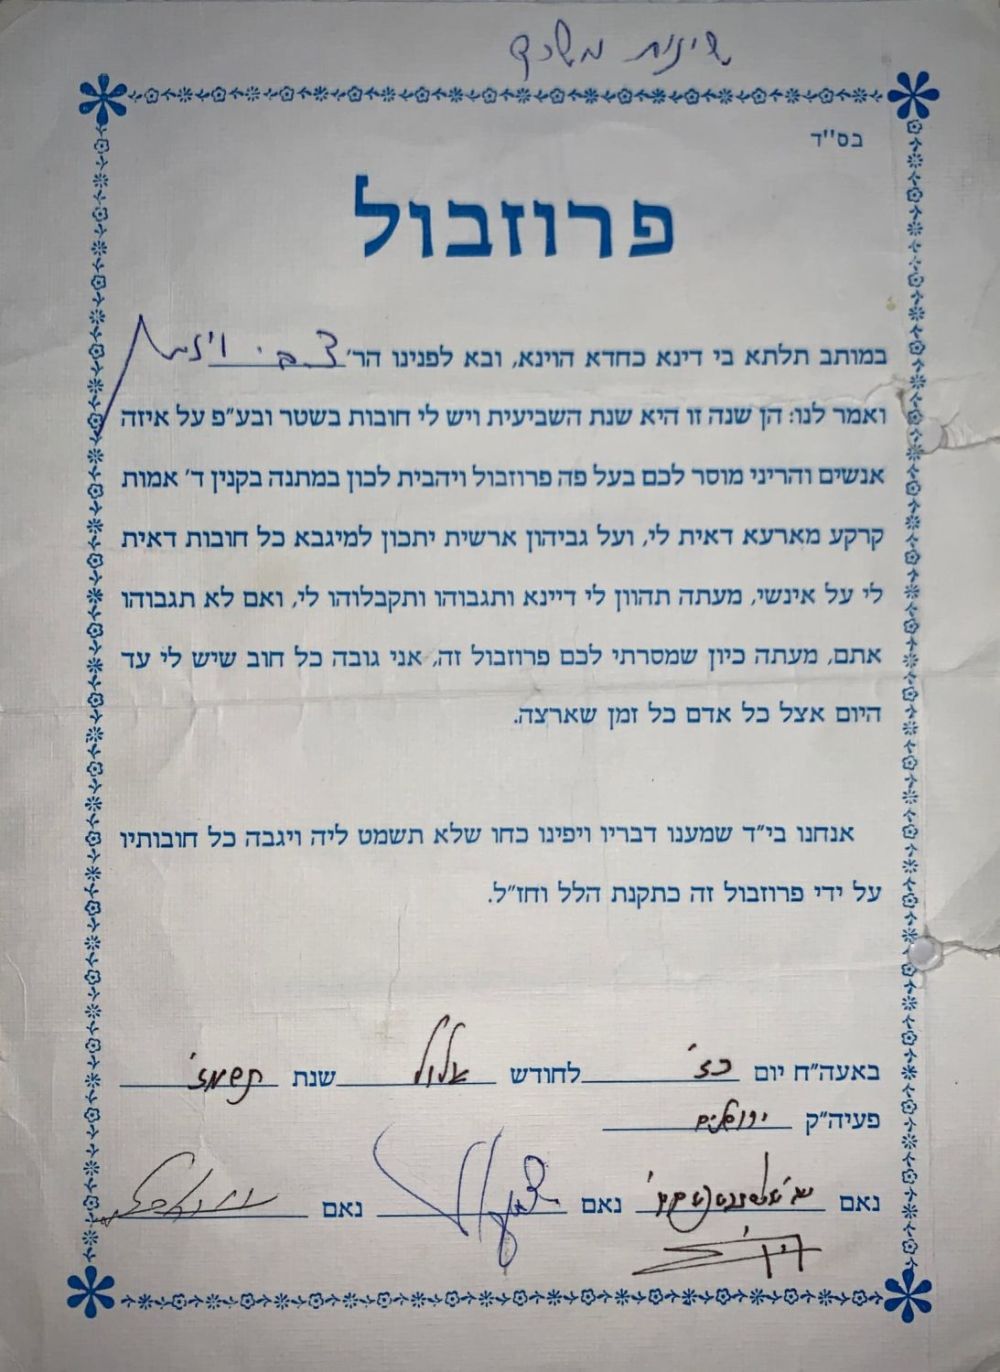 בס"ד
פרוזבול
במותב תלתא בי דינא כחדא הוינא, ובא לפנינו הר' צבי
ואמר לנו: הן שנה זו היא שנת השביעית ויש לי חובות בשטר ובע"פ על איזה
אנשים והריני מוסר לכם בעל פה פרוזבול ויהבית לכון במתנה בקנין ד' אמות
קרקע מארעא דאית לי, ועל גביהון ארשית יתכון למיגבא כל חובות דאית
לי על אינשי, מעתה תהוון לי דיינא ותגבוהו ותקבלוהו לי, ואם לא תגבוהו
אתם, מעתה כיון שמסרתי לכם פרוזבול זה, אני גובה כל חוב שיש לי עד
היום אצל כל אדם כל זמן שארצה.
אנחנו בי"ד שמענו דבריו ויפינו כחו שלא תשמט ליה ויגבה כל חובותיו
על ידי פרוזבול זה כתקנת הלל וחז"ל.
באעה"ח יום כז' לחודש אלול שנת תשמז'
פעיה"ק ירושלים
נאם נאם נאם